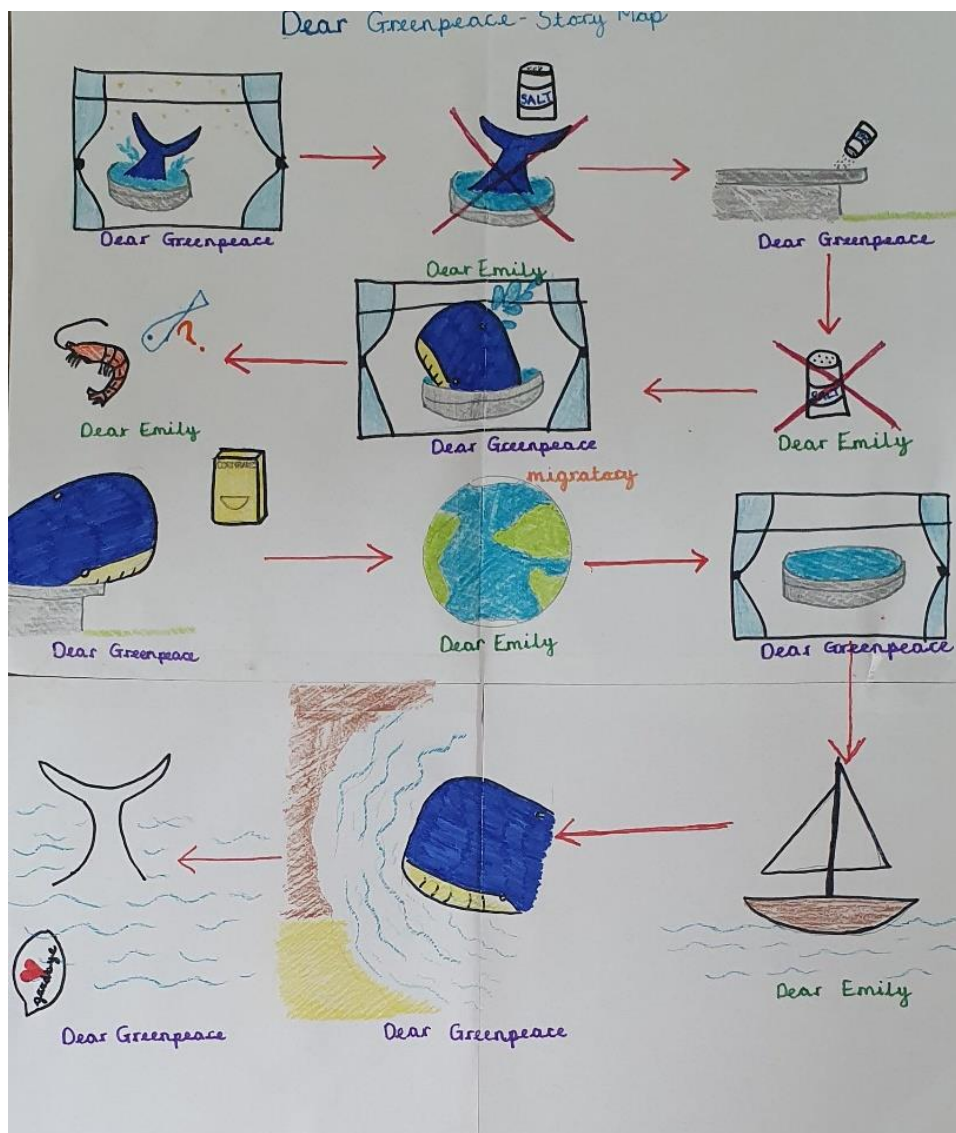 Dear Greenpeace - Story Map
SALT
Dear Greenpeace
Dear Emily
Dear Greenpeace
SALT
Dear Emily
Dear Greenpeace
?
Dear Emily
CORNFLAKES
Dear Greenpeace
migratory
Dear Emily
Dear Greenpeace
Dear Emily
Dear Greenpeace
goodbye
Dear Greenpeace